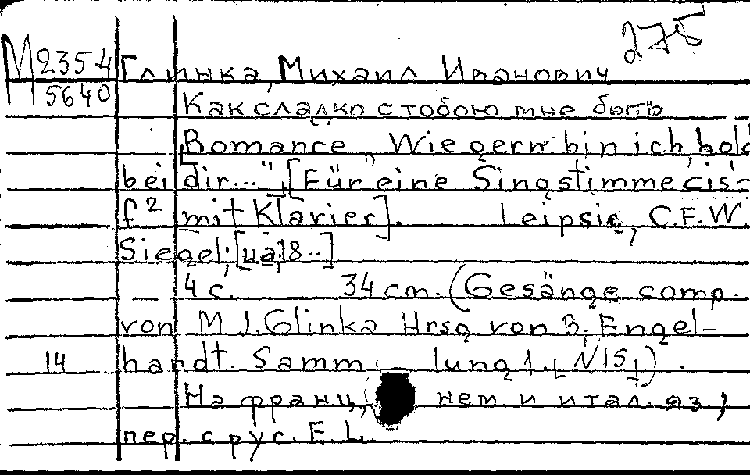 275
M 2354 Глинка, Михаил Иванович
5640 Как сладко с тобою мне быть
Romance „Wie gern bin ich hold
bei dir...", [Für eine Singstimme cis-
f² mit Klavier]. Leipsic, C.F.W.
Siegel, [ца, 18..]
4 с. 34 cm. (Gesänge comp.
von M. J. Glinka Hrsg von B. Engel-
14 hardt. Samm lung 1. [N 15]).
На франц, нем. и итал. яз,
пер. с рус. E. L.